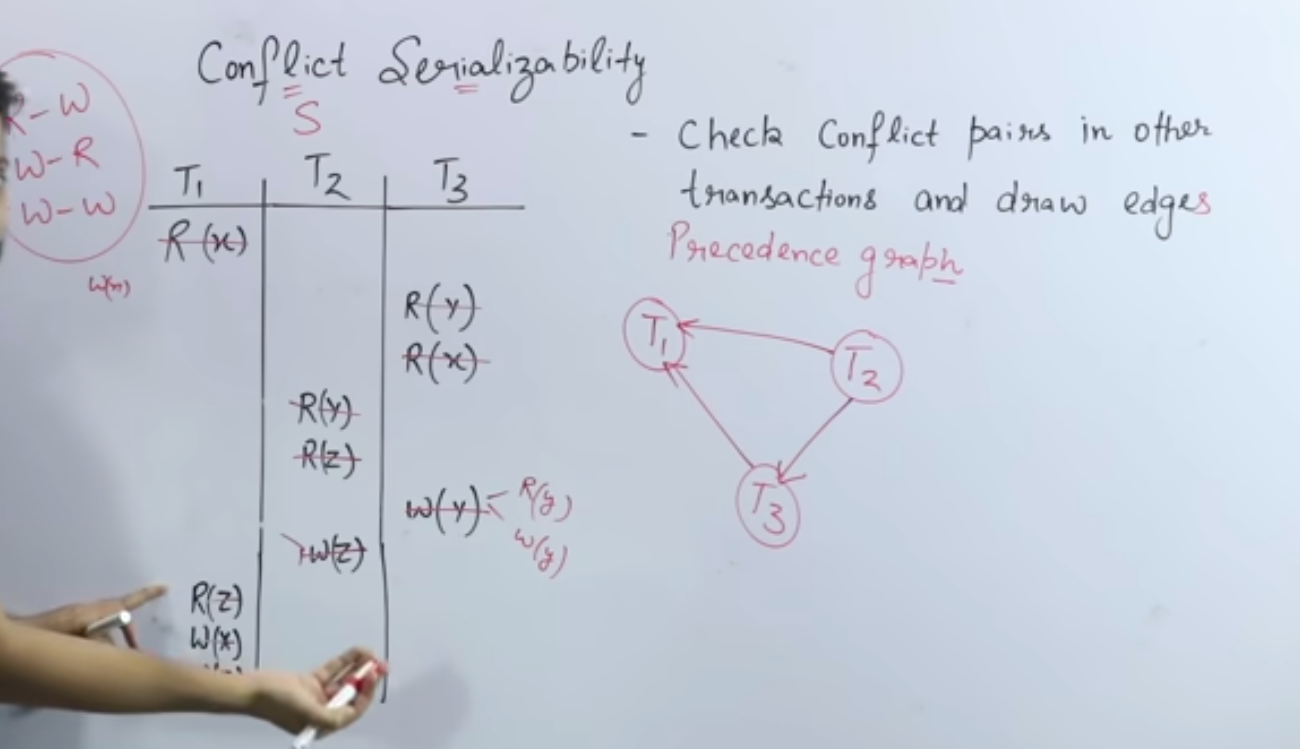 Conflict Serializability
S
R-W
W-R
W-W
W(x)
T1 T2 T3
R(x)
R(y)
R(x)
R(y)
R(z)
W(y) R(y)
W(y)
W(z)
R(z)
W(x)
- Check Conflict pairs in other
transactions and draw edges
Precedence graph
T1
T2
T3